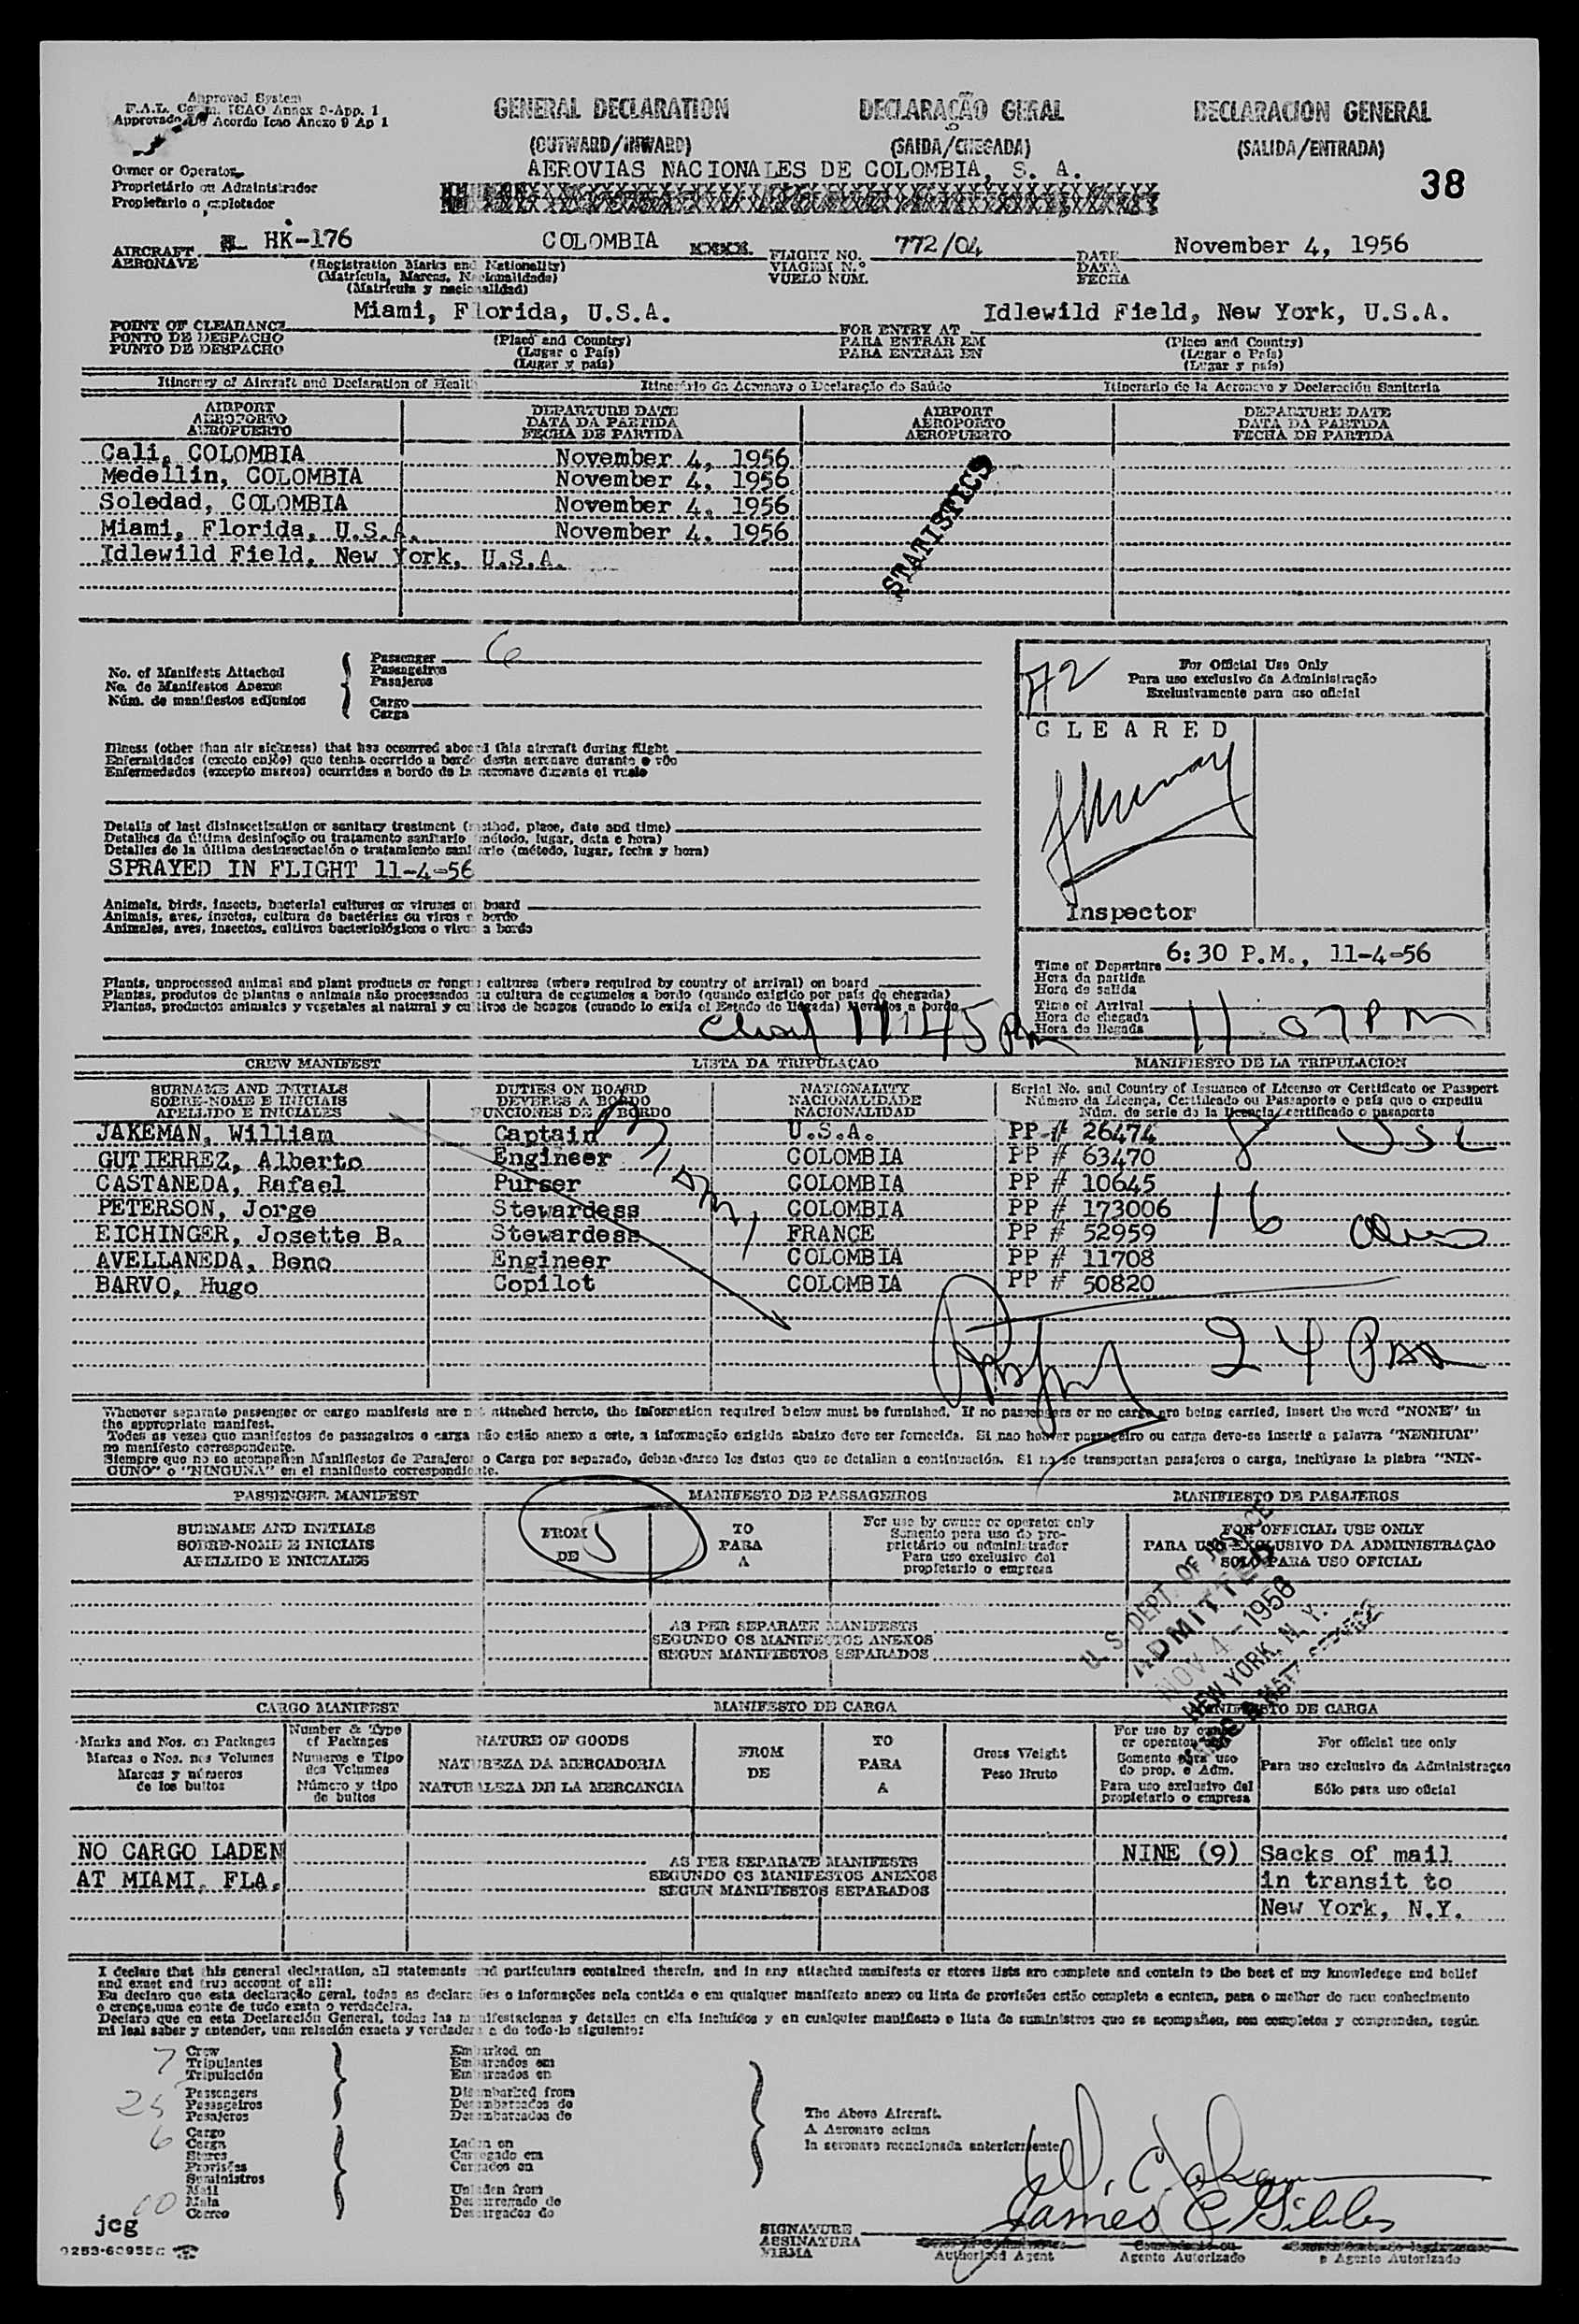 Approved System
F.A.L. Comm. ICAO Annex 9-App. 1
Approvado Acordo Icao Anexo 9 Ap 1
GENERAL DECLARATION DECLARAÇÃO GERAL DECLARACION GENERAL
(OUTWARD/INWARD) (SAIDA/CHEGADA) (SALIDA/ENTRADA)
AEROVIAS NACIONALES DE COLOMBIA, S. A.
38
Owner or Operator
Proprietário ou Administrador
Propietario o explotador
AIRCRAFT HK-176 COLOMBIA FLIGHT NO. 772/04 DATE November 4, 1956
AERONAVE VIAGEM N.º DATA
VUELO NUM. FECHA
(Registration Marks and Nationality)
(Matrícula, Marcas, Nacionalidade)
(Matrícula y nacionalidad)
POINT OF CLEARANCE Miami, Florida, U.S.A. FOR ENTRY AT Idlewild Field, New York, U.S.A.
PONTO DE DESPACHO (Place and Country) PARA ENTRAR EM (Place and Country)
PUNTO DE DESPACHO (Lugar o País) PARA ENTRAR EN (Lugar o País)
(Lugar y país) (Lugar y país)
Itinerary of Aircraft and Declaration of Health Itinerário da Aeronave o Declaração do Saúdo Itinerario de la Aeronave y Declaración Sanitaria
AIRPORT DEPARTURE DATE AIRPORT DEPARTURE DATE
AEROPORTO DATA DA PARTIDA AEROPORTO DATA DA PARTIDA
AEROPUERTO FECHA DE PARTIDA AEROPUERTO FECHA DE PARTIDA
Cali, COLOMBIA November 4, 1956
Medellin, COLOMBIA November 4, 1956
Soledad, COLOMBIA November 4, 1956
Miami, Florida, U.S.A. November 4, 1956
Idlewild Field, New York, U.S.A.
STATISTICS
No. of Manifests Attached
No. de Manifestos Anexos
Núm. de manifiestos adjuntos
Passenger 6
Passageiros
Pasajeros
Cargo
Carga
For Official Use Only
Para uso exclusivo da Administração
Exclusivamente para uso oficial
CLEARED
Inspector
Illness (other than air sickness) that has occurred aboard this aircraft during flight
Enfermidades (exceto enjôo) que tenha ocorrido a bordo desta aeronave durante o vôo
Enfermedades (excepto mareos) ocurridas a bordo de la aeronave durante el vuelo
Details of last disinsectisation or sanitary treatment (method, place, date and time)
Detalhes da última desinfeção ou tratamento sanitario (método, lugar, data e hora)
Detalles de la última desinsectación o tratamiento sanitario (método, lugar, fecha y hora)
SPRAYED IN FLIGHT 11-4-56
Animals, birds, insects, bacterial cultures or viruses on board
Animais, aves, insetos, cultura de bactérias ou virus a bordo
Animales, aves, insectos, cultivos bacteriológicos o virus a bordo
Plants, unprocessed animal and plant products or fungus cultures (where required by country of arrival) on board
Plantas, produtos de plantas e animais não processados ou cultura de cogumelos a bordo (quando exigido por país de chegada)
Plantas, productos animales y vegetales al natural y cultivos de hongos (cuando lo exija el Estado de llegada) llevados a bordo
Time of Departure 6:30 P.M., 11-4-56
Hora da partida
Hora de salida
Time of Arrival 11 07 PM
Hora de chegada
Hora de llegada
11 45 PM
CREW MANIFEST LISTA DA TRIPULAÇAO MANIFIESTO DE LA TRIPULACION
SURNAME AND INITIALS DUTIES ON BOARD NATIONALITY Serial No. and Country of Issuance of License or Certificate or Passport
SOBRE-NOME E INICIAIS DEVERES A BORDO NACIONALIDADE Número da Licença, Certificado ou Passaporte o pais que o expediu
APELLIDO E INICIALES FUNCIONES DE A BORDO NACIONALIDAD Núm. de serie de la licencia/certificado o pasaporte
JAKEMAN, William Captain U.S.A. PP # 26474
GUTIERREZ, Alberto Engineer COLOMBIA PP # 63470
CASTANEDA, Rafael Purser COLOMBIA PP # 10645
PETERSON, Jorge Stewardess COLOMBIA PP # 173006
EICHINGER, Josette B. Stewardess FRANCE PP # 52959
AVELLANEDA, Beno Engineer COLOMBIA PP # 11708
BARVO, Hugo Copilot COLOMBIA PP # 50820
8 USC
16
24
Whenever separate passenger or cargo manifests are not attached hereto, the information required below must be furnished. If no passengers or no cargo are being carried, insert the word "NONE" in
the appropriate manifest.
Todas as vezes que manifestos de passageiros e carga não estão anexo a este, a informação exigida abaixo deve ser fornecida. Si nao hoover passageiro ou carga deve-se inserir a palavra "NENHUM"
no manifesto correspondente.
Siempre que no se acompañen Manifiestos de Pasajeros o Carga por separado, deban darse los datos que se detallan a continuación. Si no se transportan pasajeros o carga, inclúyase la plabra "NIN-
GUNO" o "NINGUNA" en el manifiesto correspondiente.
PASSENGER MANIFEST MANIFESTO DE PASSAGEIROS MANIFIESTO DE PASAJEROS
SURNAME AND INITIALS
SOBRE-NOME E INICIAIS
APELLIDO E INICIALES
FROM
DE
5
TO
PARA
A
For use by owner or operator only
Somento para uso do pro-
prietário ou administrador
Para uso exclusivo del
propietario o empresa
FOR OFFICIAL USE ONLY
PARA USO EXCLUSIVO DA ADMINISTRAÇAO
SOLO PARA USO OFICIAL
AS PER SEPARATE MANIFESTS
SEGUNDO OS MANIFESTOS ANEXOS
SEGUN MANIFIESTOS SEPARADOS
U. S. DEPT. OF JUSTICE
ADMITTED
NOV 4 - 1956
NEW YORK, N. Y.
CARGO MANIFEST MANIFESTO DE CARGA MANIFIESTO DE CARGA
Marks and Nos. on Packages
Marcas o Nos. nos Volumes
Marcas y números
de los bultos
Number & Type
of Packages
Numeros e Tipo
dos Volumes
Número y tipo
de bultos
NATURE OF GOODS
NATUREZA DA MERCADORIA
NATURALEZA DE LA MERCANCIA
FROM
DE
TO
PARA
A
Gross Weight
Peso Bruto
For use by owner
or operator
Somento para uso
do prop. e Adm.
Para uso exclusivo del
propietario o empresa
For official use only
Para uso exclusivo da Administraçao
Sólo para uso oficial
NO CARGO LADEN
AT MIAMI, FLA.
AS PER SEPARATE MANIFESTS
SEGUNDO OS MANIFESTOS ANEXOS
SEGUN MANIFIESTOS SEPARADOS
NINE (9) Sacks of mail
in transit to
New York, N.Y.
I declare that this general declaration, all statements and particulars contained therein, and in any attached manifests or stores lists are complete and contain to the best of my knowledege and belief
and exact and true account of all:
Eu declaro que esta declaração geral, todas as declarações o informações nela contida e em qualquer manifesto anexo ou lista de provisões estão completo e contem, para o melhor do meu conhecimento
e crença,uma conte de tudo exata o verdadeira.
Declaro que en esta Declaración General, todas las manifestaciones y detalles en ella incluídos y en cualquier manifiesto o lista de suministros que se acompañen, son completos y comprenden, según
mi leal saber y entender, una relación exacta y verdadera de todo-lo siguiente:
7 Crew
Tripulantes
Tripulación
Passengers
Passageiros
Pasajeros
6 Cargo
Carga
Stores
Provisões
Suministros
Mail
Mala
Correo
Embarked on
Embarcados em
Embarcados en
Disembarked from
Desembarcados do
Desembarcados de
Laden on
Carregado em
Cargados en
Unladen from
Descarregado do
Descargados de
The Above Aircraft.
A Aeronave acima
La aeronave mencionada anteriormente
jcg
SIGNATURE James C Gibbs
ASSINATURA
FIRMA
Authorized Agent Agente Autorizado o Agente Autorizado